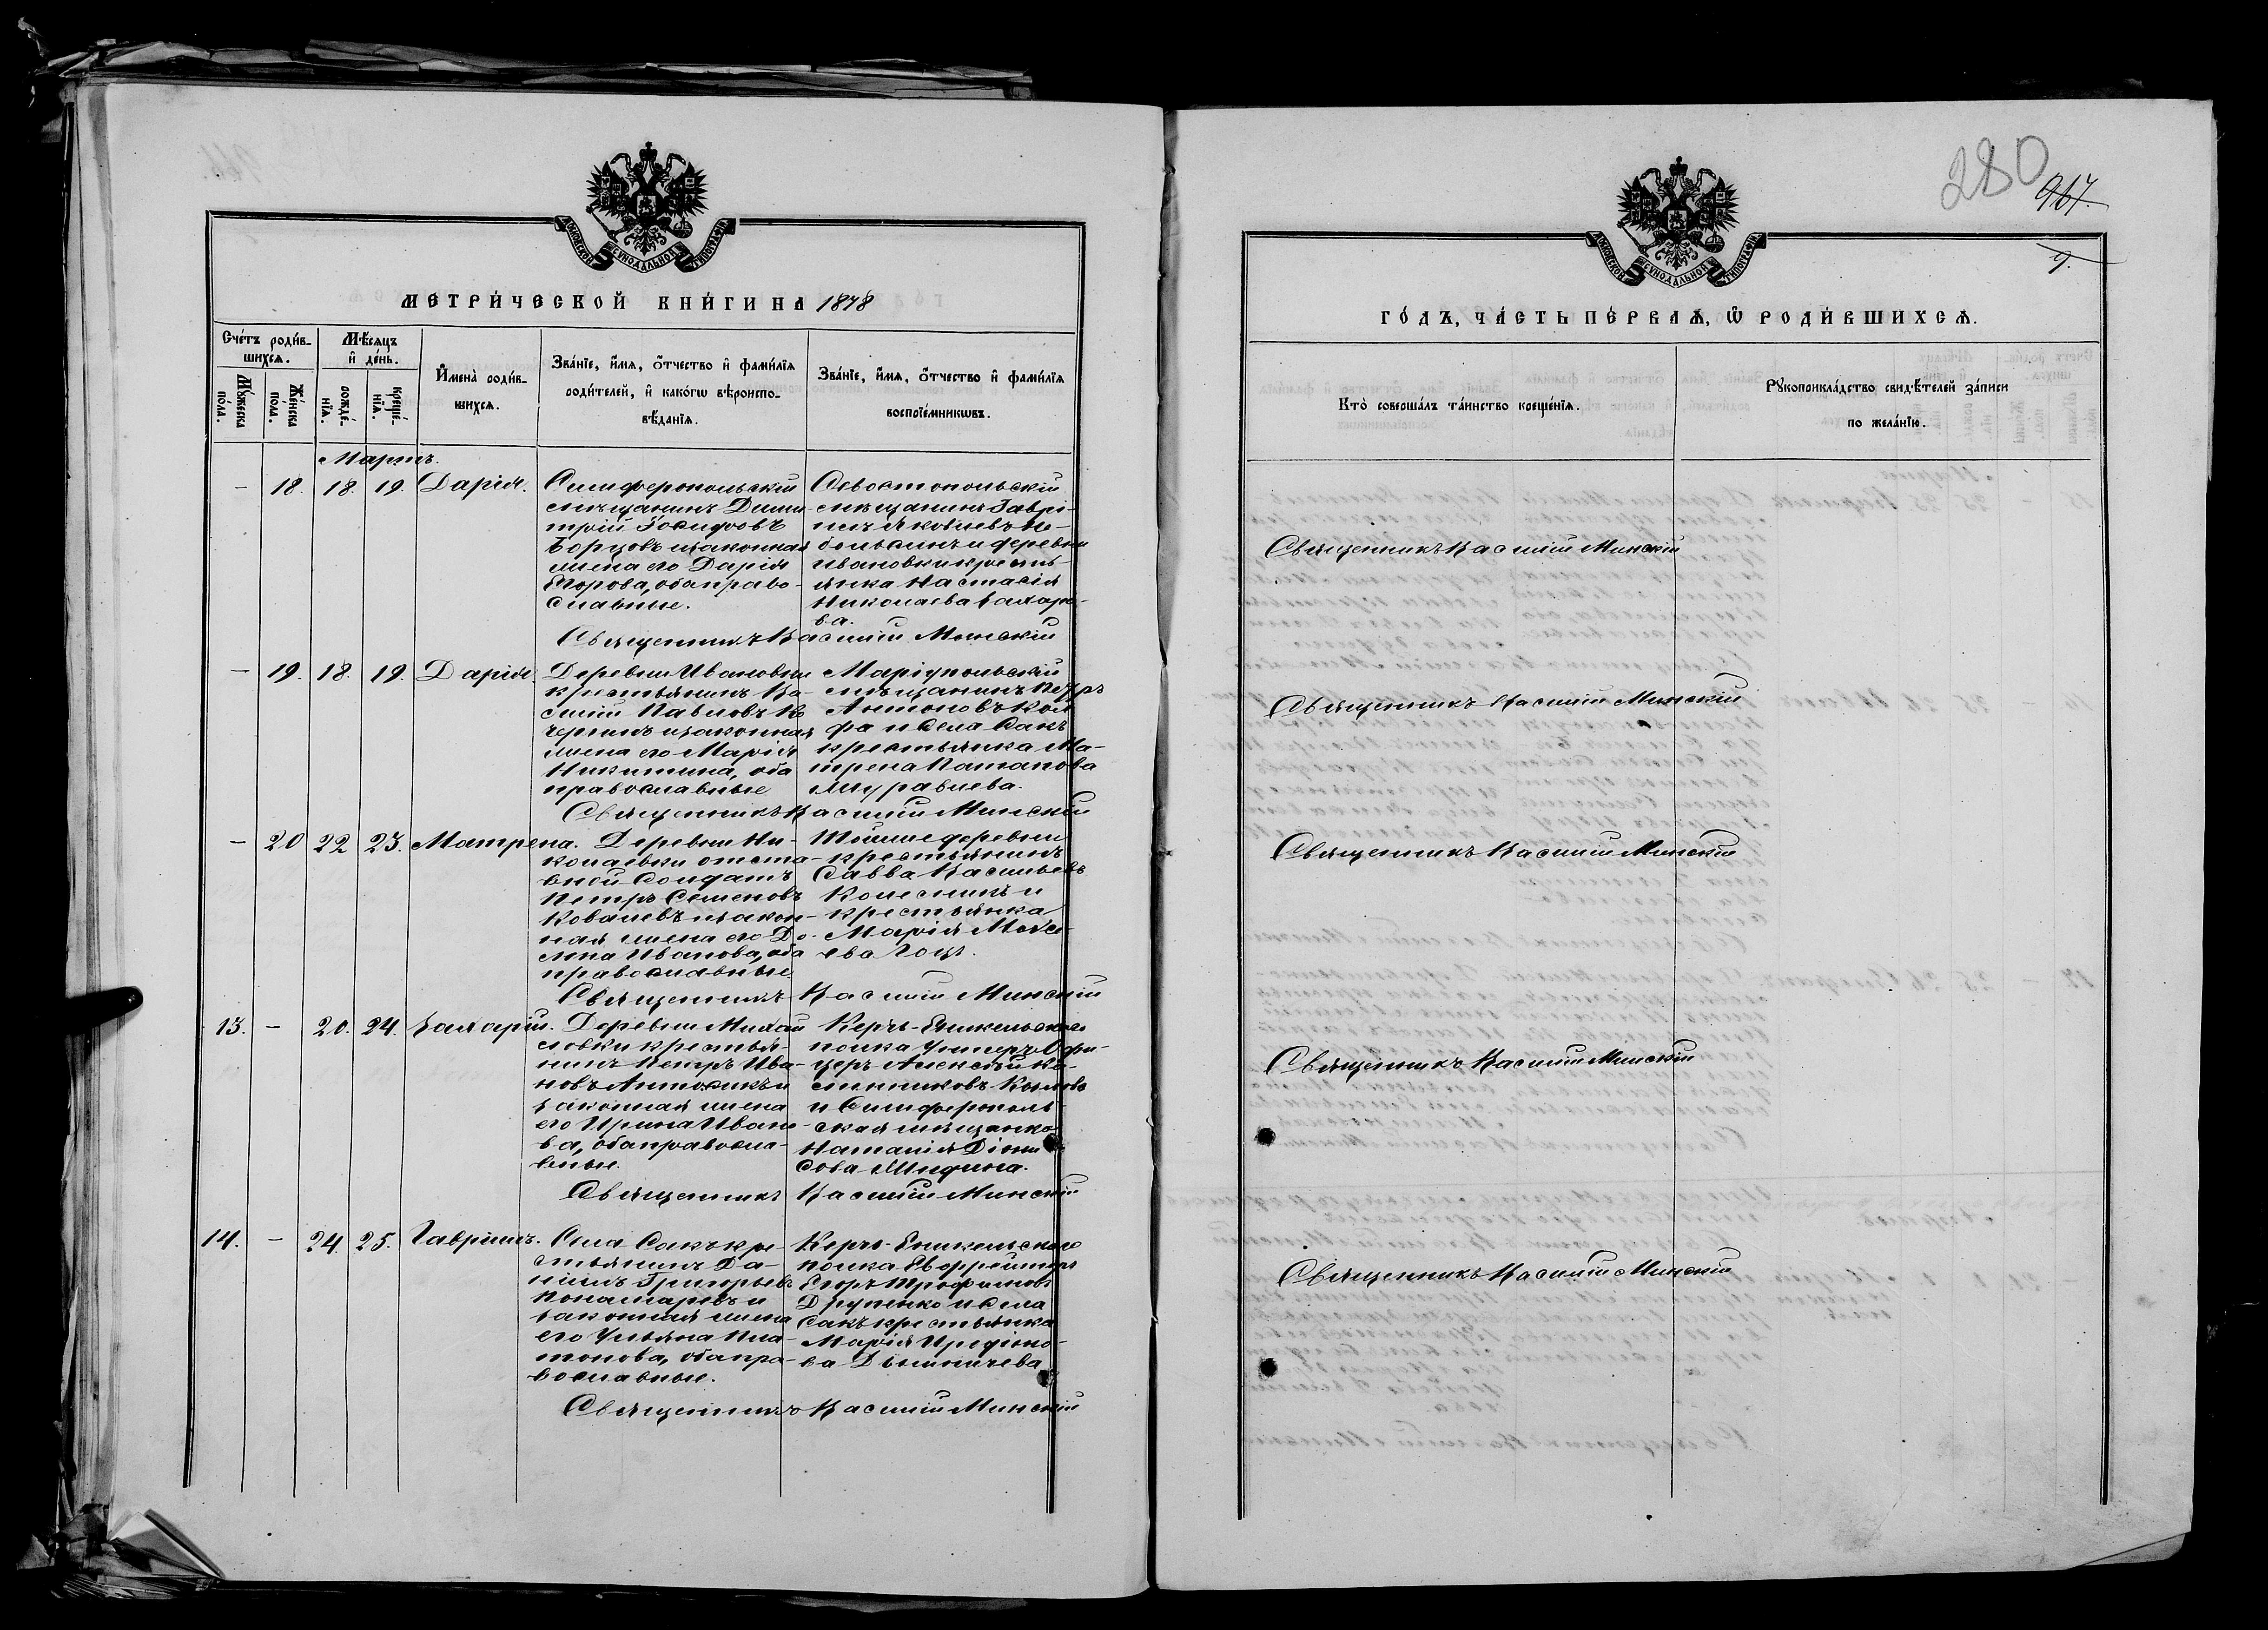 МОСКОВСКОЙ СѴНОДАЛЬНОЙ ТИПОГРАФІИ
МЕТРИ́ЧЕСКОЙ КНИ́ГИ НА 1878
Сче́тъ роди́в-
шихсѧ.
Мѣ́сѧцъ
и҆ де́нь.
Мꙋ́жеска
по́ла.
Же́нска
по́ла.
рожде́-
нїѧ.
креще́-
нїѧ.
И҆мена̀ роди́в-
шихсѧ.
Зва́нїе, и҆́мѧ, ѻ҆́тчество и҆ фами́лїѧ
роди́телей, и҆ како́гѡ вѣроиспо-
вѣ́данїѧ.
Зва́нїе, и҆́мѧ, ѻ҆́тчество и҆ фами́лїѧ
воспрїе́мникѡвъ.
Мартъ.
– 18. 18. 19. Дарія.
Симферопольскій
мѣщанинъ Дими-
трій Іосифовъ
Борцовъ и законная
жена его Дарія
Егорова, оба право-
славные.
Севостопольскій
мѣщанинъ Гаврі-
илъ Яковлевъ Не-
больсинъ и деревни
Ивановки кресть-
янка Настасія
Николаева Захаро-
ва.
Священникъ Василій Минскій
– 19. 18. 19. Дарія.
Деревни Ивановки
крестьянинъ Ва-
силій Павловъ Ко
черинъ и законная
жена его Марія
Никитина, оба
православные
Маріупольскій
мѣщанинъ Петръ
Антоновъ Кол
фа и села Сакъ
крестьянка Ма-
трена Потапова
Журавлева.
Священникъ Василій Минскій
– 20 22 23. Матрена.
Деревни Ни-
колаевки отста-
вной солдатъ
Петръ Семеновъ
Ковалевъ и закон-
ная жена его До-
мна Иванова, оба
православные
Тойже деревни
крестьянинъ
Савва Васильевъ
Колесникъ и
крестьянка
Марія Моѵсе-
ева Гоцъ.
Священникъ Василій Минскій
13. – 20. 24. Захарій.
Деревни Михай
ловки крестья-
нинъ Петръ Ива-
новъ Антосикъ и
законная жена
его Ирина Ивано-
ва, оба правосла-
вные.
Керчъ-Еникельскаго
полка Унтеръ Офи-
церъ Алексѣй Ка-
линниковъ Козловъ
и Симферополь-
ская мѣщанка
Наталія Діони
сова Мидина.
Священникъ Василій Минскій
14. – 24. 25. Гавріилъ.
Села Сакъ кре-
стьянинъ Да-
ніилъ Григорьевъ
Понамаревъ и
законная жена
его Ульяна Пла-
тонова, оба пра-
вославные.
Керчъ-Еникельскаго
полка Ефрейторъ
Егоръ Трофимовъ
и села
Сакъ крестьянка
Марія Иродіоно-
ва
Священникъ Василій Минскій
280
967.
9.
МОСКОВСКОЙ СѴНОДАЛЬНОЙ ТИПОГРАФІИ
ГО́ДЪ, ЧА́СТЬ ПЕ́РВАѦ, Ѽ РОДИ́ВШИХСѦ.
Кто̀ соверша́лъ та́инство креще́нїѧ.
Рꙋкоприкла́дство свидѣ́телей за́писи
по жела́нїю.
Священникъ Василій Минскій
Священникъ Василій Минскій
Священникъ Василій Минскій
Священникъ Василій Минскій
Священникъ Василій Минскій